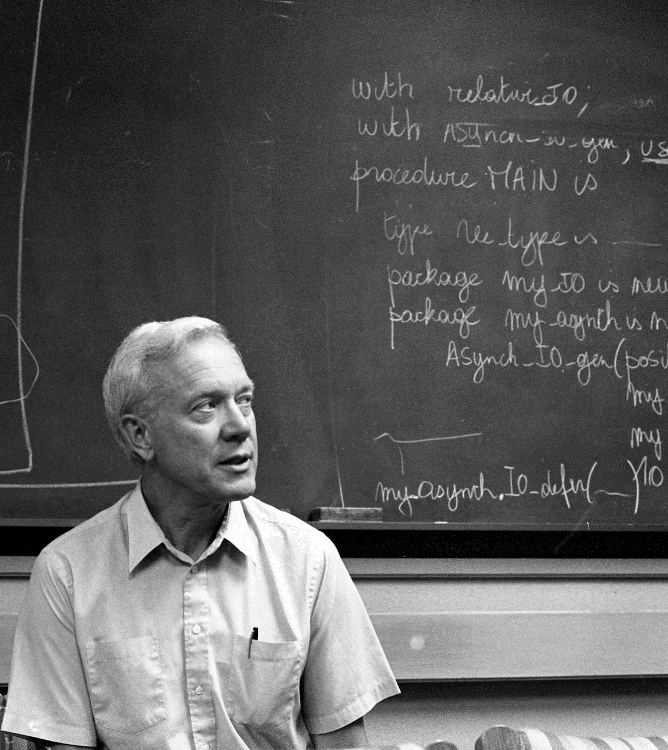 with
with Asynch_io_gen, us
procedure MAIN is
type is
package my_IO is new
package my_asynch is n
Asynch_IO_gen(posi
my
my
my_asynch.IO_defer(__)